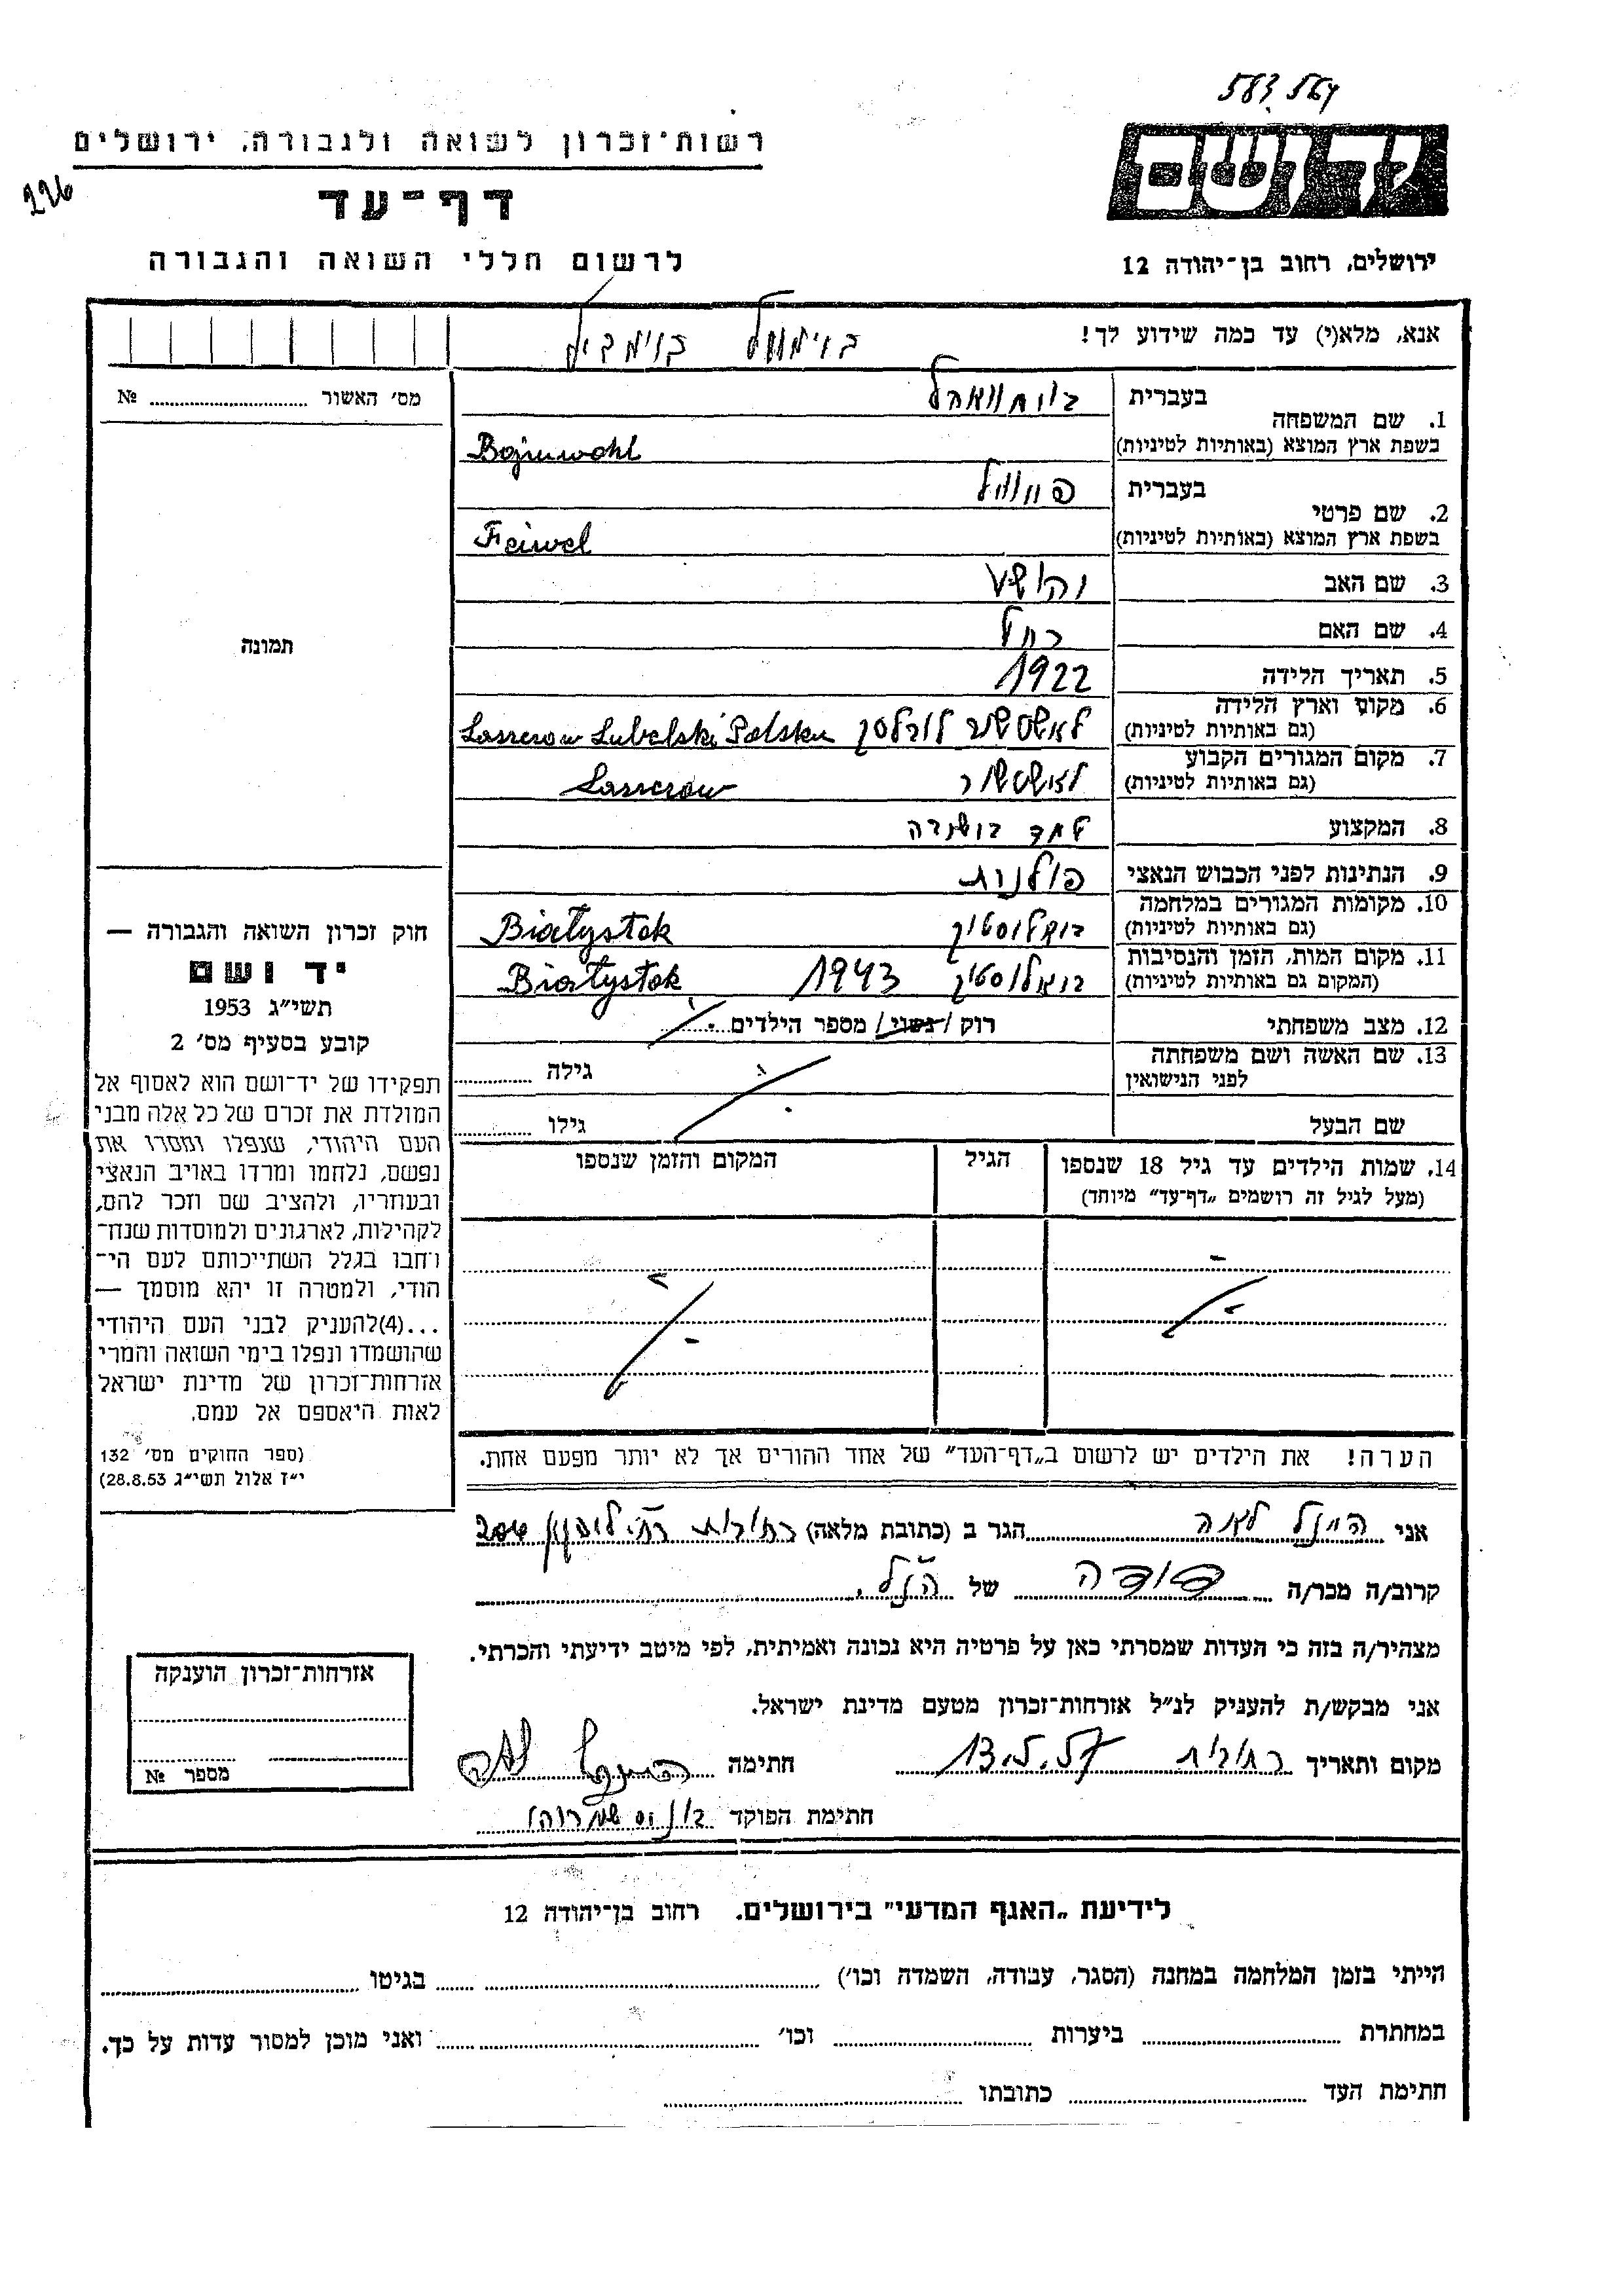 583 564
רשות־זכרון לשואה ולגבורה, ירושלים
226
דף־עד
ידושם
לרשום חללי השואה והגבורה
ירושלים, רחוב בן־יהודה 12
אנא, מלא(י) עד כמה שידוע לך!
מס׳ האשור № 
1. שם המשפחה
בעברית
בשפת ארץ המוצא (באותיות לטיניות) Bojmwohl
2. שם פרטי
בעברית פייוול
בשפת ארץ המוצא (באותיות לטיניות) Feiwel
3. שם האב יהושע
4. שם האם רחל
תמונה
5. תאריך הלידה 1922
6. מקום וארץ הלידה
(גם באותיות לטיניות) Laszczow Lubelski Polska
7. מקום המגורים הקבוע
(גם באותיות לטיניות) Laszczow
8. המקצוע
9. הנתינות לפני הכבוש הנאצי פולנית
10. מקומות המגורים במלחמה
(גם באותיות לטיניות) ביאליסטוק Białystok
11. מקום המות, הזמן והנסיבות
(המקום גם באותיות לטיניות) ביאליסטוק 1943 Białystok
12. מצב משפחתי רוק / נשוי / מספר הילדים
13. שם האשה ושם משפחתה
לפני הנישואין
גילה
שם הבעל
גילו
14. שמות הילדים עד גיל 18 שנספו
(מעל לגיל זה רושמים „דף־עד״ מיוחד)
הגיל
המקום והזמן שנספו
חוק זכרון השואה והגבורה —
יד ושם
תשי״ג 1953
קובע בסעיף מס׳ 2
תפקידו של יד־ושם הוא לאסוף אל
המולדת את זכרם של כל אלה מבני
העם היהודי, שנפלו ומסרו את
נפשם, נלחמו ומרדו באויב הנאצי
ובעוזריו, ולהציב שם וזכר להם,
לקהילות, לארגונים ולמוסדות שנח־
רבו בגלל השתייכותם לעם הי־
הודי, ולמטרה זו יהא מוסמך —
...(4)להעניק לבני העם היהודי
שהושמדו ונפלו בימי השואה והמרי
אזרחות־זכרון של מדינת ישראל
לאות היאספם אל עמם.
(ספר החוקים מס׳ 132
י״ז אלול תשי״ג 28.8.53)
הערה! את הילדים יש לרשום ב„דף־העד״ של אחד ההורים אך לא יותר מפעם אחת.
אני היינל לאה הגר ב (כתובת מלאה) רחובות
קרוב/ה מכר/ה דודה של הנ״ל.
מצהיר/ה בזה כי העדות שמסרתי כאן על פרטיה היא נכונה ואמיתית, לפי מיטב ידיעתי והכרתי.
אני מבקש/ת להעניק לנ״ל אזרחות־זכרון מטעם מדינת ישראל.
מקום ותאריך רחובות חתימה
חתימת הפוקד
אזרחות־זכרון הוענקה
מספר №
לידיעת „האגף המדעי״ בירושלים. רחוב בן־יהודה 12
הייתי בזמן המלחמה במחנה (הסגר, עבודה, השמדה וכו׳) בגיטו
במחתרת ביערות וכו׳ ואני מוכן למסור עדות על כך.
חתימת העד כתובתו